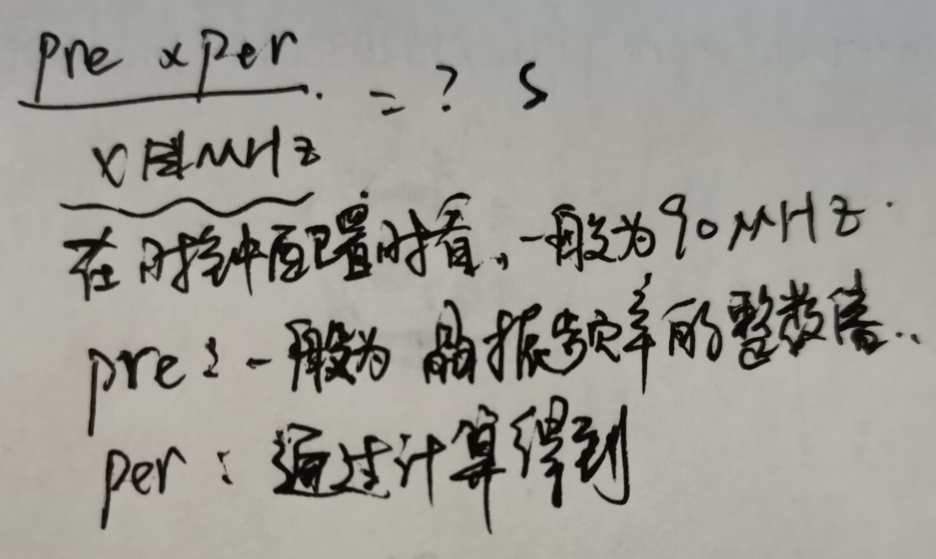 pre x per
= ? S
x MHz
在时钟配置时看,一般为90MHz.
pre:一般为 晶振频率的整数倍..
per:通过计算得到